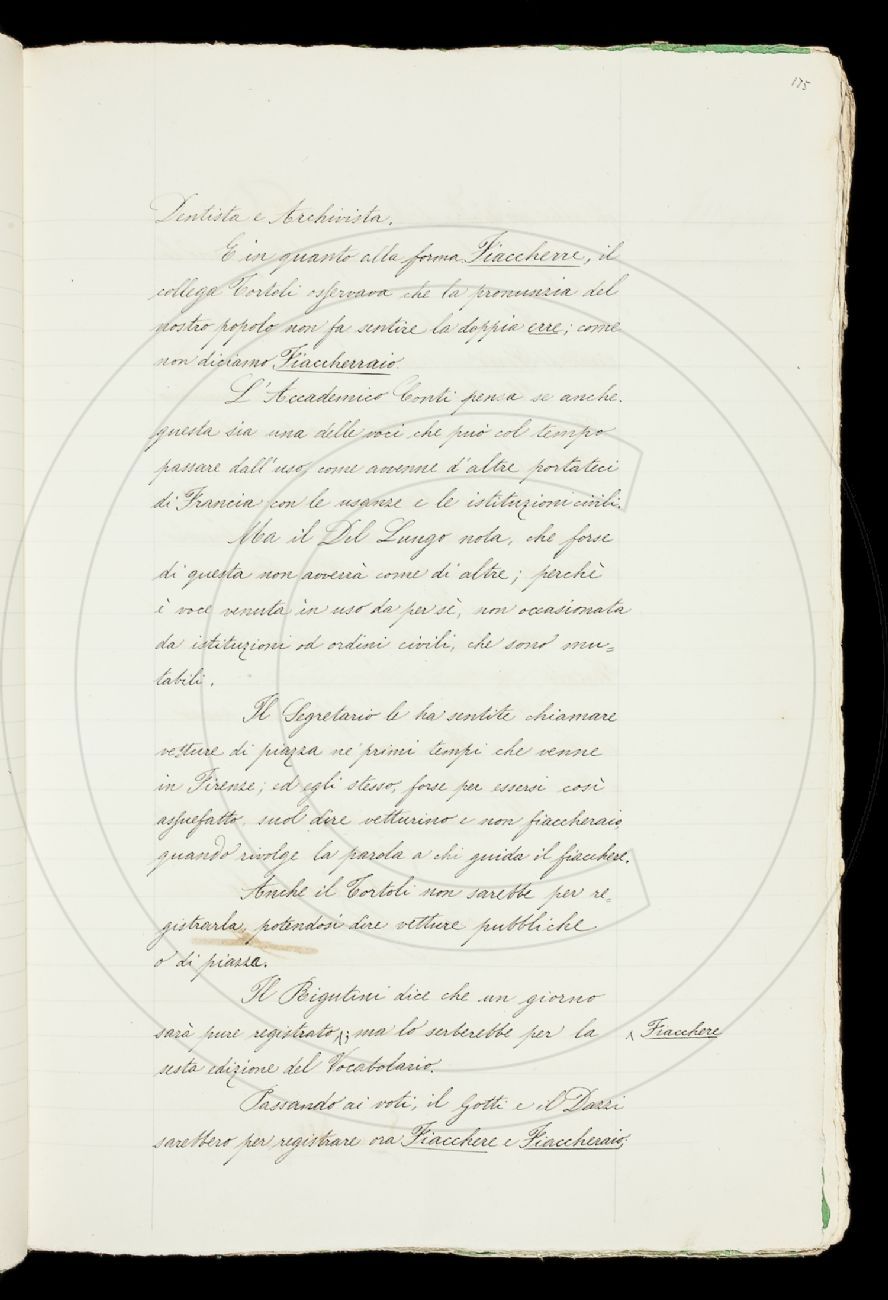 175
Dentista e Archivista.
E in quanto alla forma Fiaccherre, il
collega Tortoli osservava che la pronunzia del
nostro popolo non fa sentire la doppia erre; come
non diciamo Fiaccherraio.
L'Accademico Conti pensa se anche
questa sia una delle voci che può col tempo
passare dall'uso, come avvenne d'altre portateci
di Francia con le usanze e le istituzioni civili.
Ma il Del Lungo nota, che forse
di questa non avverrà come di altre; perchè
è voce venuta in uso da per sè, non occasionata
da istituzioni od ordini civili, che sono mu=
tabili.
Il Segretario le ha sentite chiamare
vetture di piazza ne' primi tempi che venne
in Firenze; ed egli stesso, forse per essersi così
assuefatto, suol dire vetturino e non fiaccheraio,
quando rivolge la parola a chi guida il fiacchere.
Anche il Tortoli non sarebbe per re=
gistrarla, potendosi dire vetture pubbliche
o di piazza.
Il Rigutini dice che un giorno
sarà pure registrato ^; ma lo serberebbe per la ^ Fiacchere
sesta edizione del Vocabolario.
Passando ai voti, il Gotti e il Dazzi
sarebbero per registrare ora Fiacchere e Fiaccheraio,